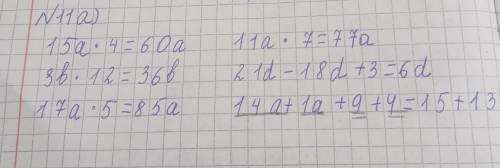 N11a)
15a · 4 = 60a
11a · 7 = 77a
3b · 12 = 36b
21d - 18d + 3 = 6d
17a · 5 = 85a
14a + 1a + 9 + 4 = 15 + 13